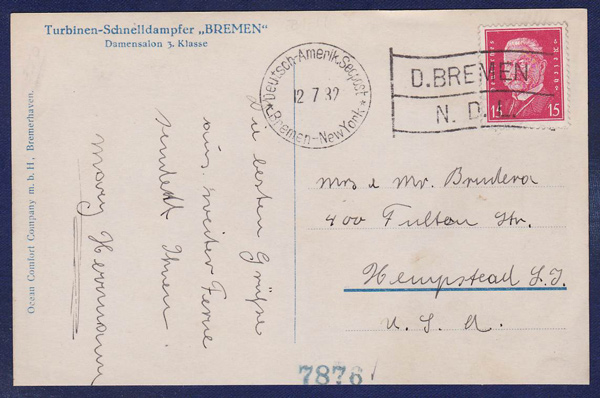 Turbinen-Schnelldampfer „BREMEN“
Damensalon 3. Klasse
Deutsch-Amerik. Seepost
12 7 32
* Bremen-New York *
D. BREMEN
N. D. L.
15 15
Die besten Grüße
aus weiter Ferne
sendet Ihnen
Mary Herrmann
Mrs & Mr. Brudera
400 Fulton Str.
Hempstead L. I.
U. S. A.
Ocean Comfort Company m. b. H., Bremerhaven.
7876